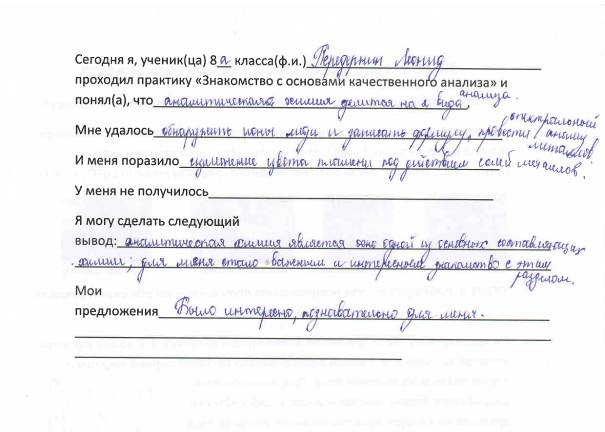 Сегодня я, ученик(ца) 8 а класса(ф.и.) Леонид
проходил практику «Знакомство с основами качественного анализа» и
понял(а), что аналитическая химия делится на 2 вида анализа.
Мне удалось обнаружить ионы меди и записать формулу, провести спектральный анализ металлов
И меня поразило изменение цвета пламени под действием солей металлов.
У меня не получилось
Я могу сделать следующий
вывод: аналитическая химия является одной из основных составляющих
химии; для меня стало важным и интересным знакомство с этим разделом.
Мои
предложения Было интересно, познавательно для меня.